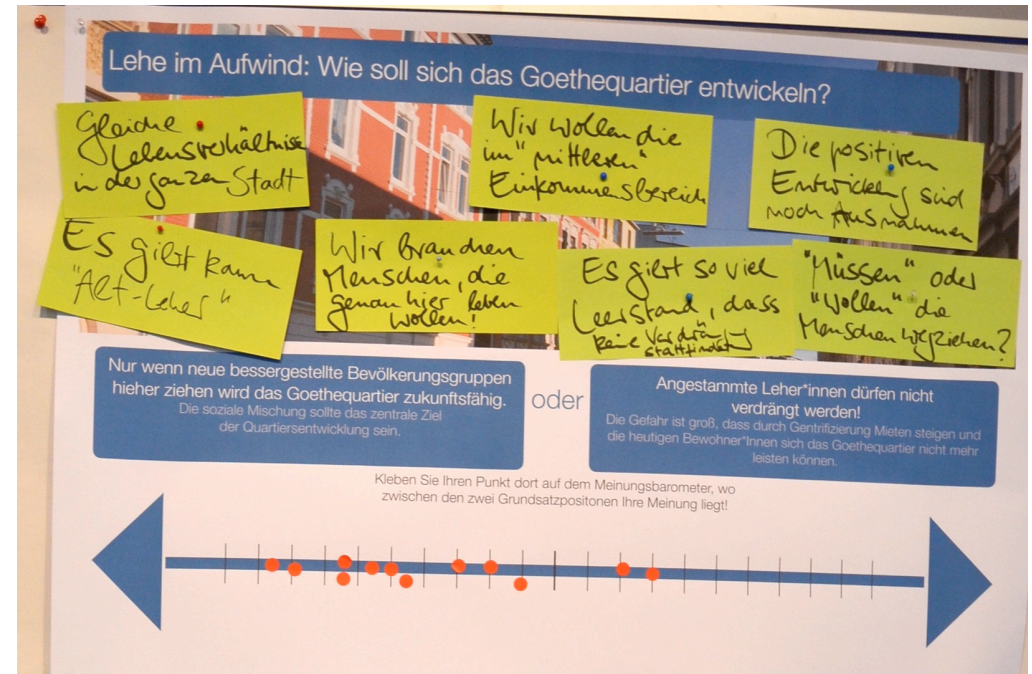 Lehe im Aufwind: Wie soll sich das Goethequartier entwickeln?
Gleiche
Lebensverhältnisse
in der ganzen Stadt
Wir wollen die
im "mittleren"
Einkommensbereich
Die positiven
Entwicklung sind
noch Ausnahmen
Es gibt kaum
"Alt-Leher"
Wir brauchen
Menschen, die
genau hier leben
wollen!
Es gibt so viel
Leerstand, dass
keine Verdrängung
stattfindet
"Müssen" oder
"Wollen" die
Menschen wegziehen?
Nur wenn neue bessergestellte Bevölkerungsgruppen
hieher ziehen wird das Goethequartier zukunftsfähig.
Die soziale Mischung sollte das zentrale Ziel
der Quartiersentwicklung sein.
oder
Angestammte Leher*innen dürfen nicht
verdrängt werden!
Die Gefahr ist groß, dass durch Gentrifizierung Mieten steigen und
die heutigen Bewohner*Innen sich das Goethequartier nicht mehr
leisten können.
Kleben Sie Ihren Punkt dort auf dem Meinungsbarometer, wo
zwischen den zwei Grundsatzpositonen Ihre Meinung liegt!